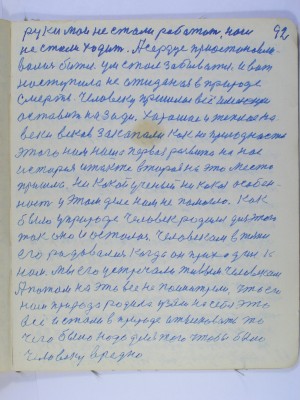 92
руки мои не стали работат, ноги
не стали ходит. А сердце приостановы-
валися бится. ум стал забыват. и вот
наступила не ожиданая в природе
смерть. Человеку пришлос всё имеющие
оставит на зади. Харошае и теплае на
веки веков закапали как по природности
этого ним нашо первае развито на нас
история и также вторая на это место
пришла. Ни какой ученый ни кака особен-
ност у этом деле нам не помогло. Как
было у природе человек родился для того
так оно и осталося. Человекам в жизни
его радовалися. Когда он приходил к
нам мы его встречали живым человеком
А потом на это все не посмотрели, что его
нам природа родила взяли на себя это
всё и стали в природе отвоёвыват то
чего было надо для того чтобы было
человеку вредно